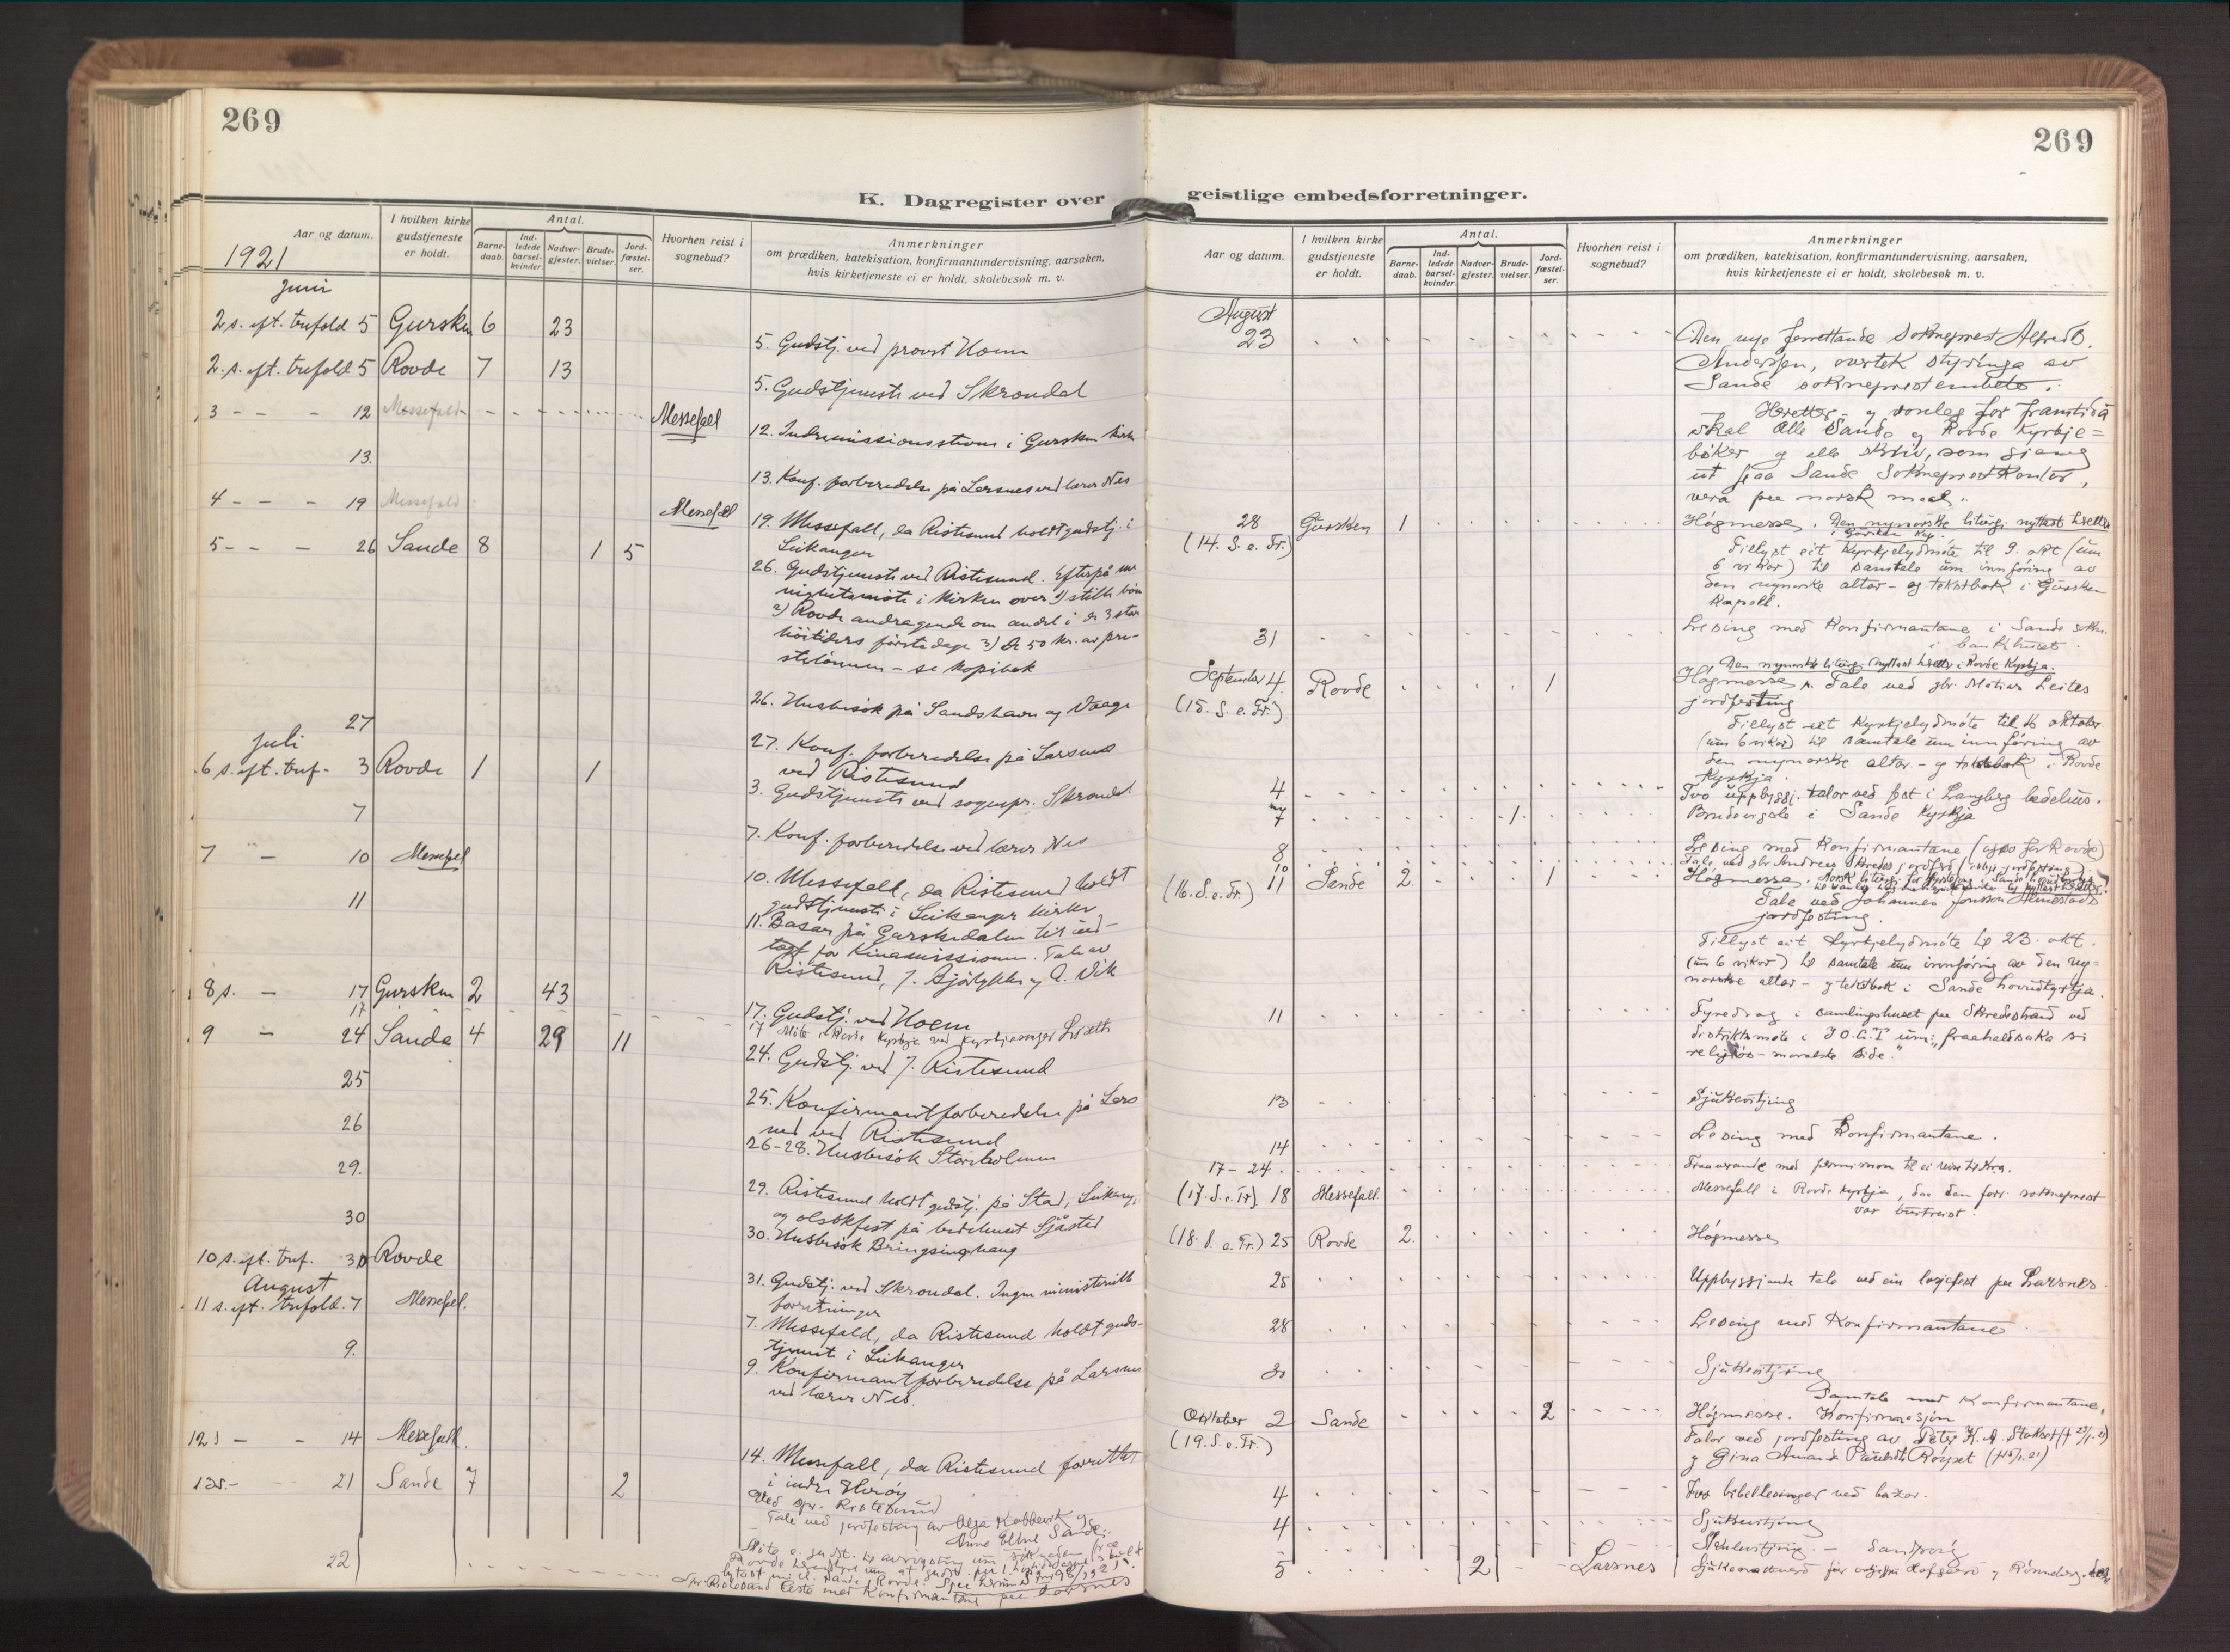 269
K. Dagregister over
Aar og datum.
I hvilken kirke gudstjeneste er holdt.
Antal.
Barne-daab.
Ind-ledede barsel-kvinder.
Nadver-gjester.
Brude-vielser.
Jord-fæstel-ser.
Hvorhen reist i sognebud?
Anmerkninger
om prædiken, katekisation, konfirmantundervisning, aarsaken,
hvis kirketjeneste ei er holdt, skolebesøk m. v.
1921
Juni
2 s. eft. trefold 5 Gursken 6 23
5. Gudstj. ved provst Hoem
2. s. eft. trefold 5 Rovde 7 13
5. Gudstjeneste ved Skrondal
3 - - - 12 Messefald Messefald
12. Indremissionsstevne i Gursken kirke
13.
13. Konf. forberedelse på Larsnes ved lærer Nes
4 - - - 19 Messefald Messefald
19. Messefall, da Ristesund holdt gudstj. i
Leikanger
5 - - - 26 Sande 8 1 5
26. Gudstjeneste ved Ristesund. Efterpå me
nighetsmøte i kirken over 1) stille bøn
2) Rovde andragende om andel i de 3 store
høitiders første dage 3) De 50 kr. av pre-
stelønnen - se kopibok
26. Husbesøk på Sandshavn og Vaage
27
27. Konf. forberedelse på Larsnes
ved Ristesund
Juli
6 s. eft. tref. 3 Rovde 1 1
3. Gudstjeneste ved sognepr. Skrondal
7
7. Konf. forberedelse ved lærer Nes
7 - 10 Messefal
10. Messefall, da Ristesund holdt
gudstjeneste i Leikanger kirke
11
11. Basar på Gurskedalen til ind-
tægt for Kinamissionen. Tale av
Ristesund, J. Bjørlykke og A. Vik
8 s. - 17 Gursken 2 43
17. Gudstj. ved Hoem
17
17 Møte i Rovde Kyrkja ved Kyrkjesongar
9 - 24 Sande 4 29 11
24. Gudstj. ved J. Ristesund
25
25. Konfirmantforberedelse på Lars
nes ved Ristesund
26
26-28. Husbesøk Storholmen
29.
29. Ristesund holdt gudstj. på Stad, Leikang.
og olsokfest på bedehuset Sjåstad
30
30. Husbesøk Bringsinghaug
10 s. eft. tref. 30 Rovde
31. Gudstj. ved Skrondal. Ingen ministerielle
forretninger
August
11 s. eft. trefold. 7 Messefal.
7. Messefald, da Ristesund holdt guds-
tjeneste i Leikanger
9.
9. Konfirmantforberedelse på Larsnes
ved lærer Nes.
12 s - - 14 Messefall.
14. Messefall, da Ristesund forrettet
i indre Herøy
13 s. - - 21 Sande 7 2
Ved spr. Ristesund
Tale ved jordfesting av Olga Kobbevik og
Anne Sande.
22
Spr. Ristesund leste med Konfirmantane paa Larsnes
269
geistlige embedsforretninger.
Aar og datum.
I hvilken kirke gudstjeneste er holdt.
Antal.
Barne-daab.
Ind-ledede barsel-kvinder.
Nadver-gjester.
Brude-vielser.
Jord-fæstel-ser.
Hvorhen reist i sognebud?
Anmerkninger
om prædiken, katekisation, konfirmantundervisning, aarsaken,
hvis kirketjeneste ei er holdt, skolebesøk m. v.
August
23
Den nye forrettande Sokneprest Alfred B.
Anderssen, overtek styringa av
Sande sokneprestembete.
Heretter og vonleg for framtida
skal alle Sande og Rovde Kyrkje=
bøker og alle skriv, som gjeng
ut fraa Sande Sokneprestkontor,
vera paa norsk maal.
28 Gursken 1
(14. S. e. Tr.)
Høgmessa. Den nynorske liturgi nyttast
Tillyst eit Kyrkjelydmøte til 9. okt (um
6 vikor) til samtale um innføring av
den nynorske altar- og tekstbok i Gursken
Kapell.
31
Lesing med Konfirmantane i Sande sokn.
i bankhuset.
Den nynorske liturgi nyttast i Rovde Kyrkja.
September 4. Rovde 1
(15. S. e. Tr.)
Høgmessa. Tale ved gbr. Matias Leites
jordfesting
Tillyst eit Kyrkjelydmøte til 16 oktober
(um 6 vikor) til samtale um innføring av
den nynorske altar- og tekstbok i Rovde
Kyrkja.
4
Tvo uppbyggj. talor ved fest i bedehus.
7 1
Brudevigsle i Sande Kyrkja
8
Lesing med Konfirmantane (ogso for Rovde)
10
(16. S. e. Tr.) 11 Sande 2. 1
Høgmessa.
Tale ved Johannes Jonsson
jordfesting.
Tillyst eit Kyrkjelydmøte til 23. okt.
(um 6 vikor) til samtale um innføring av den ny=
norske altar- og tekstbok i Sande hovudkyrkja.
11
Fyredrag i samlingshuset paa Skredestrand ved
distriktsmøte i I.O.G.T um: "fraahaldssaka si
religiøs-moralske side."
13
Sjukevitjing
14
Lesing med Konfirmantane.
17 - 24.
Fraaverande med permisjon til ei reise til Kra.
(17. S. e. Tr) 18 Messefall.
Messefall i Rovde Kyrkja, daa den forr. sokneprest
var burtreist.
(18. S. e. Tr.) 25 Rovde 2.
Høgmessa
25
Uppbyggjande tale ved ein losjefest paa Larsnes.
28
Lesing med Konfirmantane
30
Sjukevitjing
Samtale med Konfirmantane.
Oktober 2 Sande 2
(19. S. e. Tr.)
Høgmesse. Konfirmasjon
Talor ved jordfesting av Peter K. A.
og Gina Amanda
4
Tvo bibellesingar ved basar.
4
Sjukevitjing
Skulevitjing. -
5 2 Larsnes